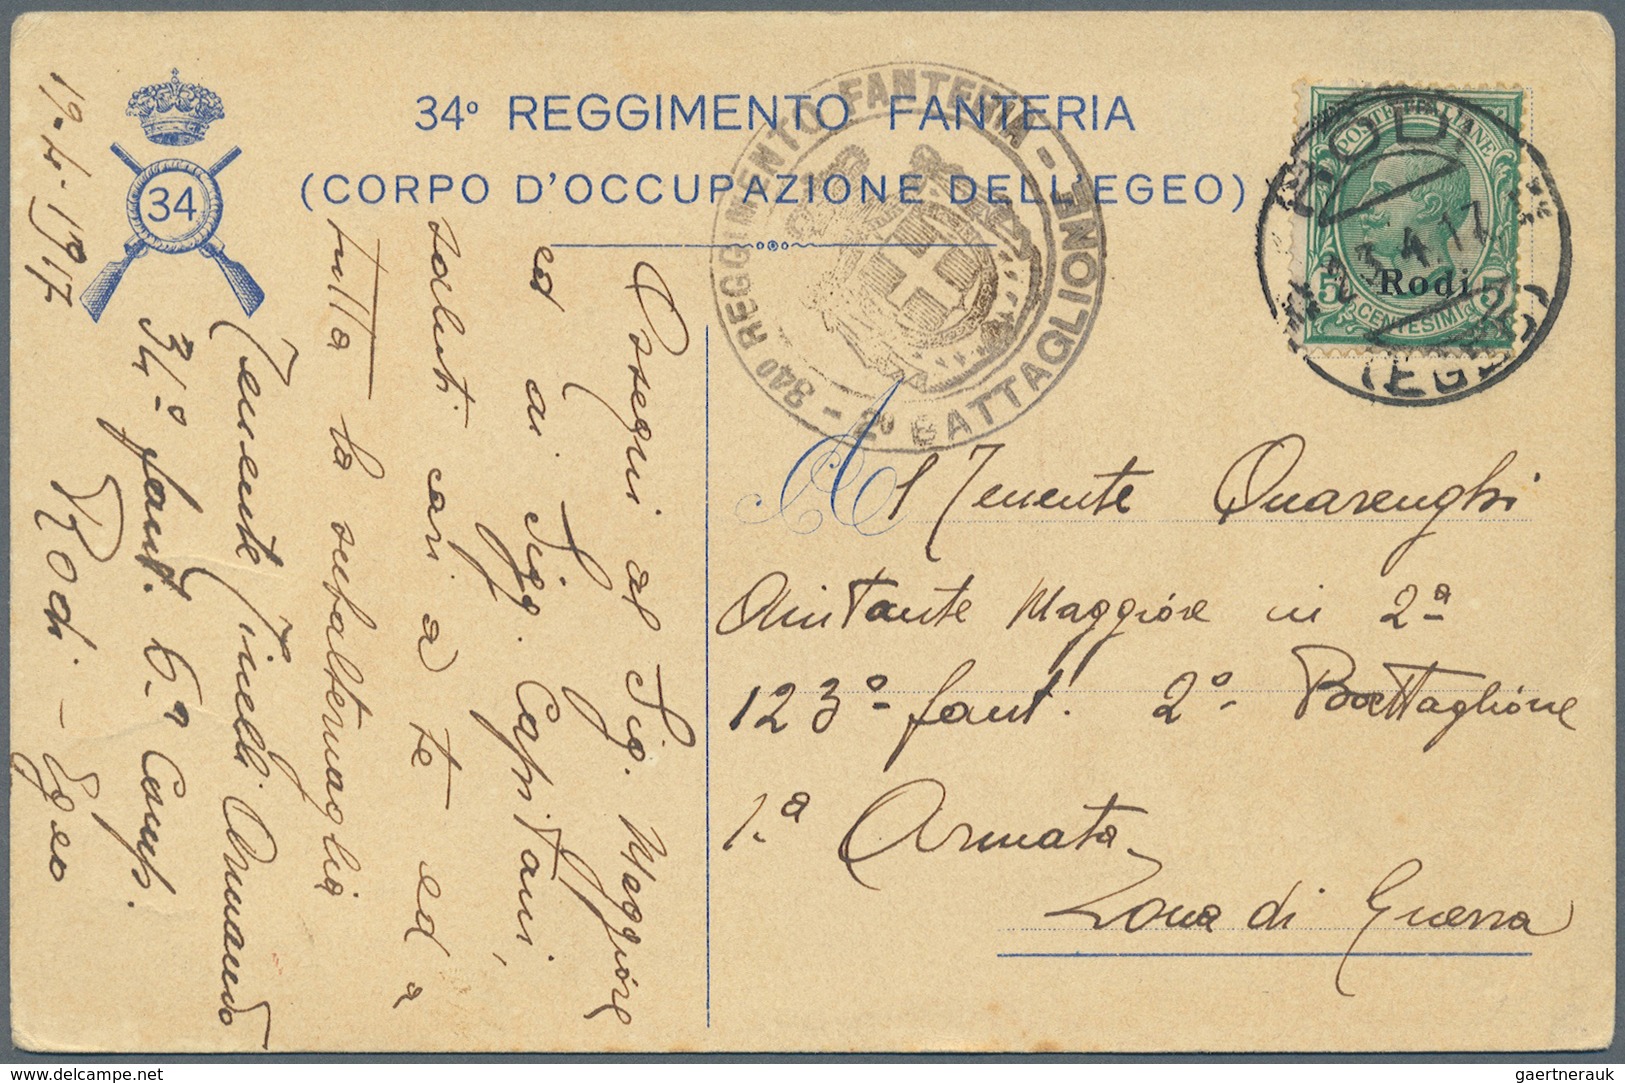 34º REGGIMENTO FANTERIA
(CORPO D'OCCUPAZIONE DELL'EGEO)
34
34º REGGIMENTO FANTERIA - 2º BATTAGLIONE -
POSTE ITALIANE
Rodi
5 CENTESIMI 5
RODI
3.4.17
(EGEO)
A
l Tenente Quarenghi
Aiutante Maggiore in 2ª
123º fant. 2º Battaglione
1.ª Armata
Zona di Guerra
Ossequi al Sig. Maggiore
ed ai Sigg. Capitani,
saluti cari a te ed a
tutta la subalternaglia
Tenente Armando
34º fant. 6ª Comp.
Rodi - Egeo
19-4-1917
gaertnerauk
delcampe.net